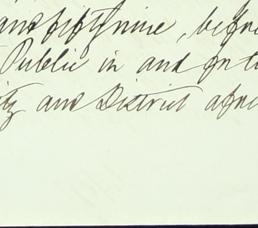 and fifty nine, before
Public in and for the
ity and District afore